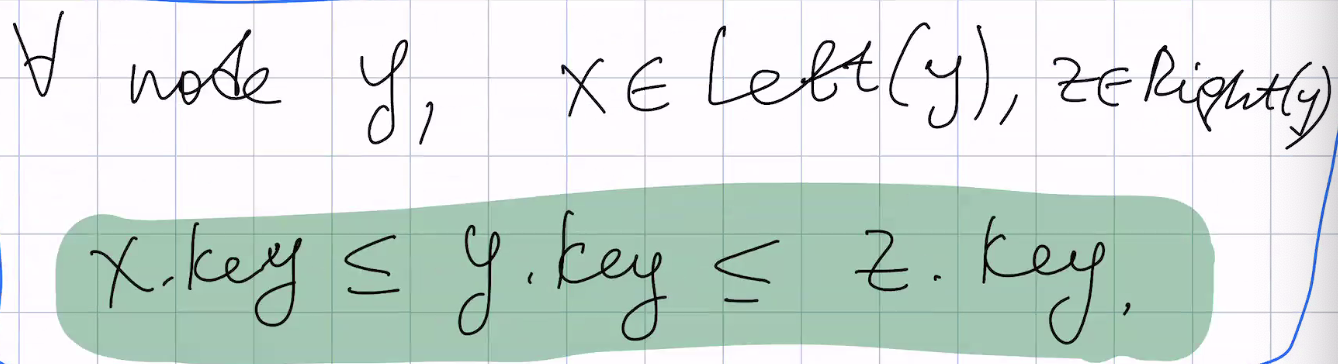 ∀ node y, x ∈ Left(y), z ∈ Right(y)
x.key ≤ y.key ≤ z.key,